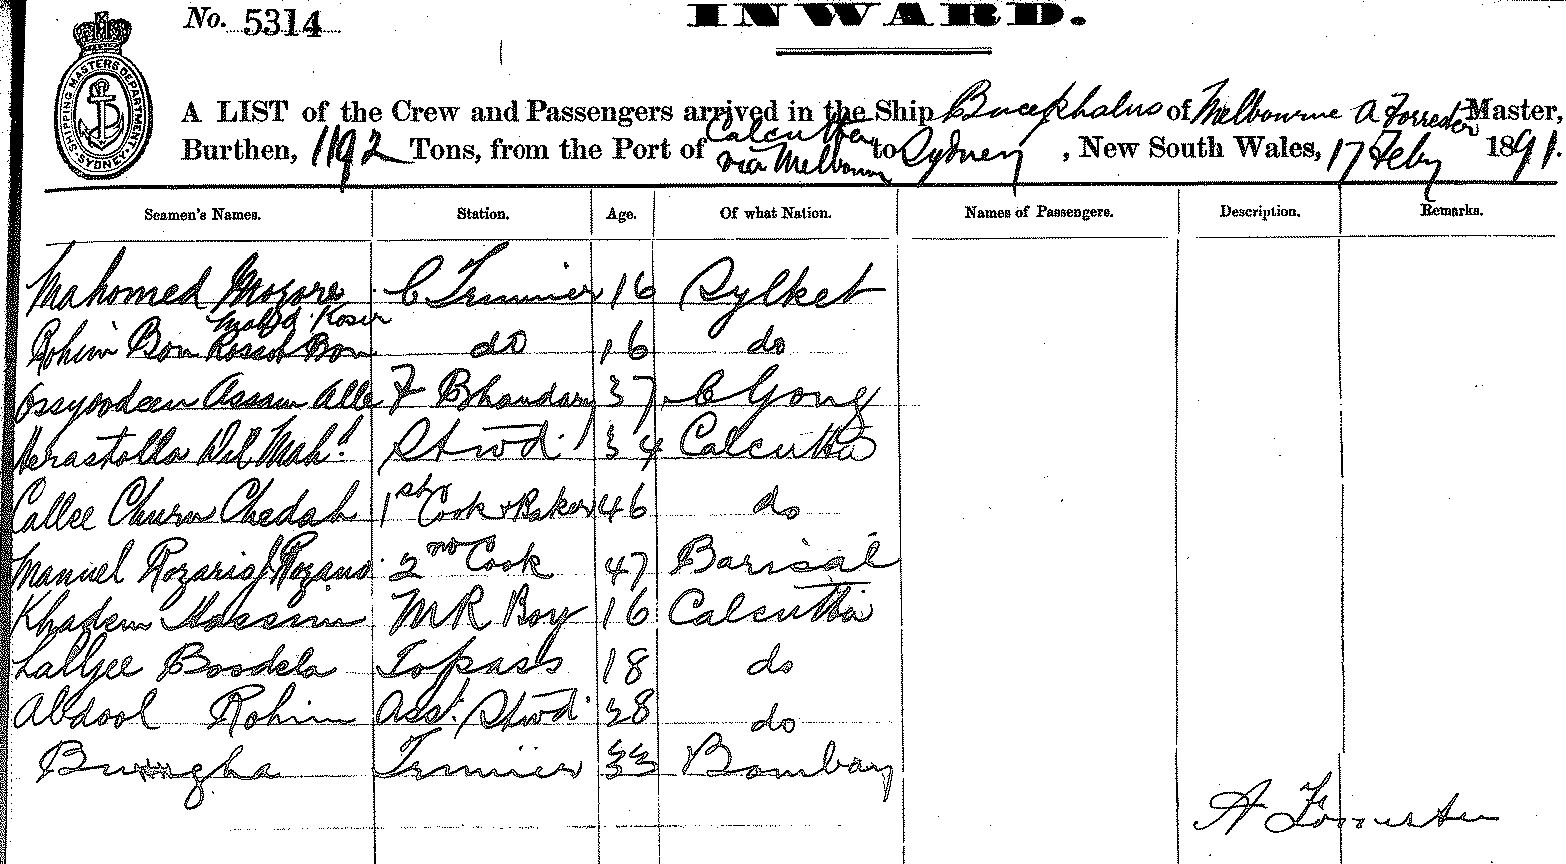 No. 5314
INWARD.
SHIPPING MASTERS DEPARTMENT
A LIST of the Crew and Passengers arrived in the Ship Bucephalus of Melbourne A Forrester Master,
Burthen, 1192 Tons, from the Port of Calcutta via Melbourne to Sydney, New South Wales, 17 Feby 1891.
Seamen's Names. Station. Age. Of what Nation. Names of Passengers. Description. Remarks.
Mahomed Mozore C Trimmer 16 Sylket
Mahd. Koser
Rohim Box Rossol Box do 16 do
Ossyoodeen Assam Alle F Bhandary 37 C Gong
Dil Mahd. Stwd. 34 Calcutta
Callee Churn Chedah 1st Cook & Baker 46 do
Manuel Rozario J. Rozario 2nd Cook 47 Barisal
Khadem Hossim MR Boy 16 Calcutta
Lalljee Boodela Topass 18 do
Abdool Rohim Asst. Stwd. 28 do
Trimmer 33 Bombay
A Forrester